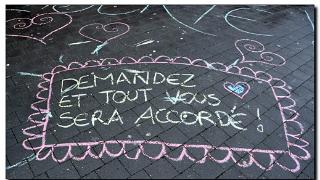 DEMANDEZ
ET TOUT VOUS
SERA ACCORDÉ !